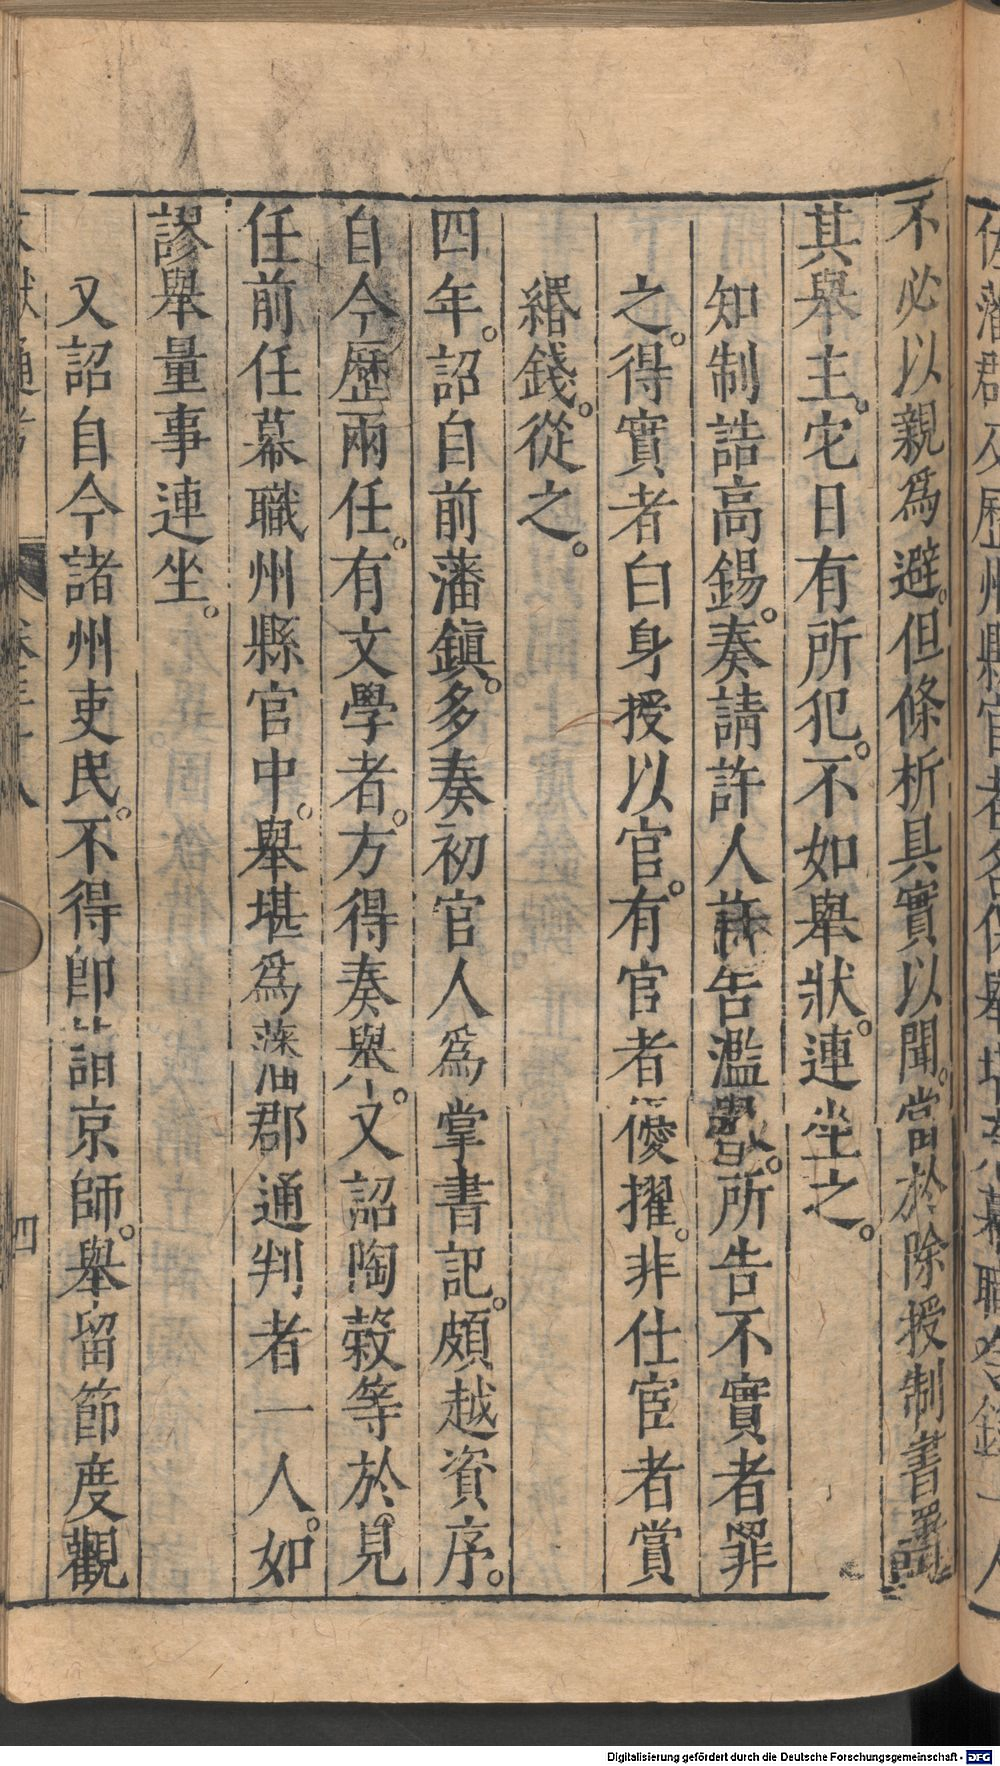 不必以親爲避。但條析具實以聞。當於除授制書署
其舉主。它日有所犯。不如舉狀。連坐之。
知制誥高錫。奏請許人訴告濫舉。所告不實者罪
之。得實者白身授以官。有官者優擢。非仕宦者賞
緡錢。從之。
四年。詔自前藩鎮。多奏初官人爲掌書記。頗越資序。
自今歷兩任。有文學者。方得奏舉。又詔陶榖等於見
任前任幕職州縣官中。舉堪爲藩郡通判者一人。如
謬舉量事連坐。
又詔自今諸州吏民。不得卽詣京師。舉留節度觀
四
Digitalisierung gefördert durch die Deutsche Forschungsgemeinschaft - DFG